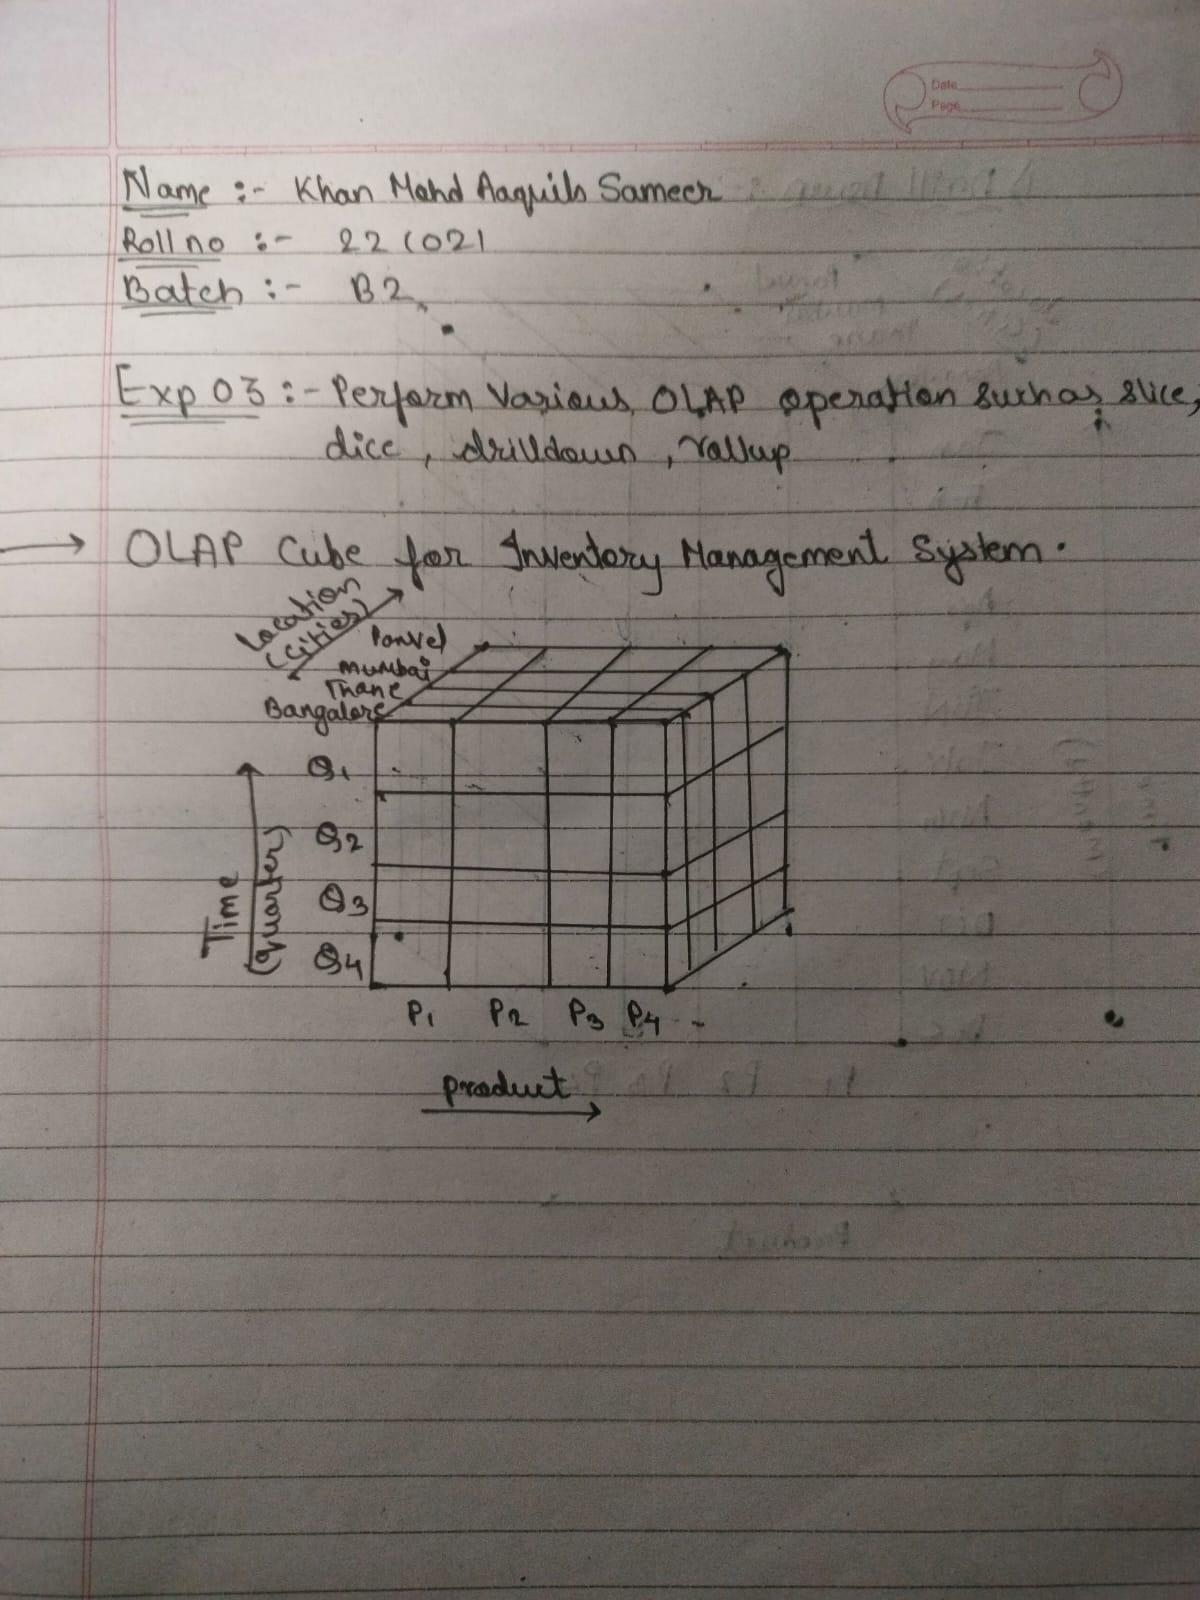 Date
Page
Name :- Khan Mohd Aaquib Sameer
Roll no :- 221021
Batch :- B2
Exp 03 :- Perform Various OLAP operation such as slice,
dice, drilldown, rollup
OLAP Cube for Inventory Management System.
Location
(cities)
Panvel
Mumbai
Thane
Bangalore
Q1
Q2
Q3
Q4
Time
(quarter)
P1 P2 P3 P4
product